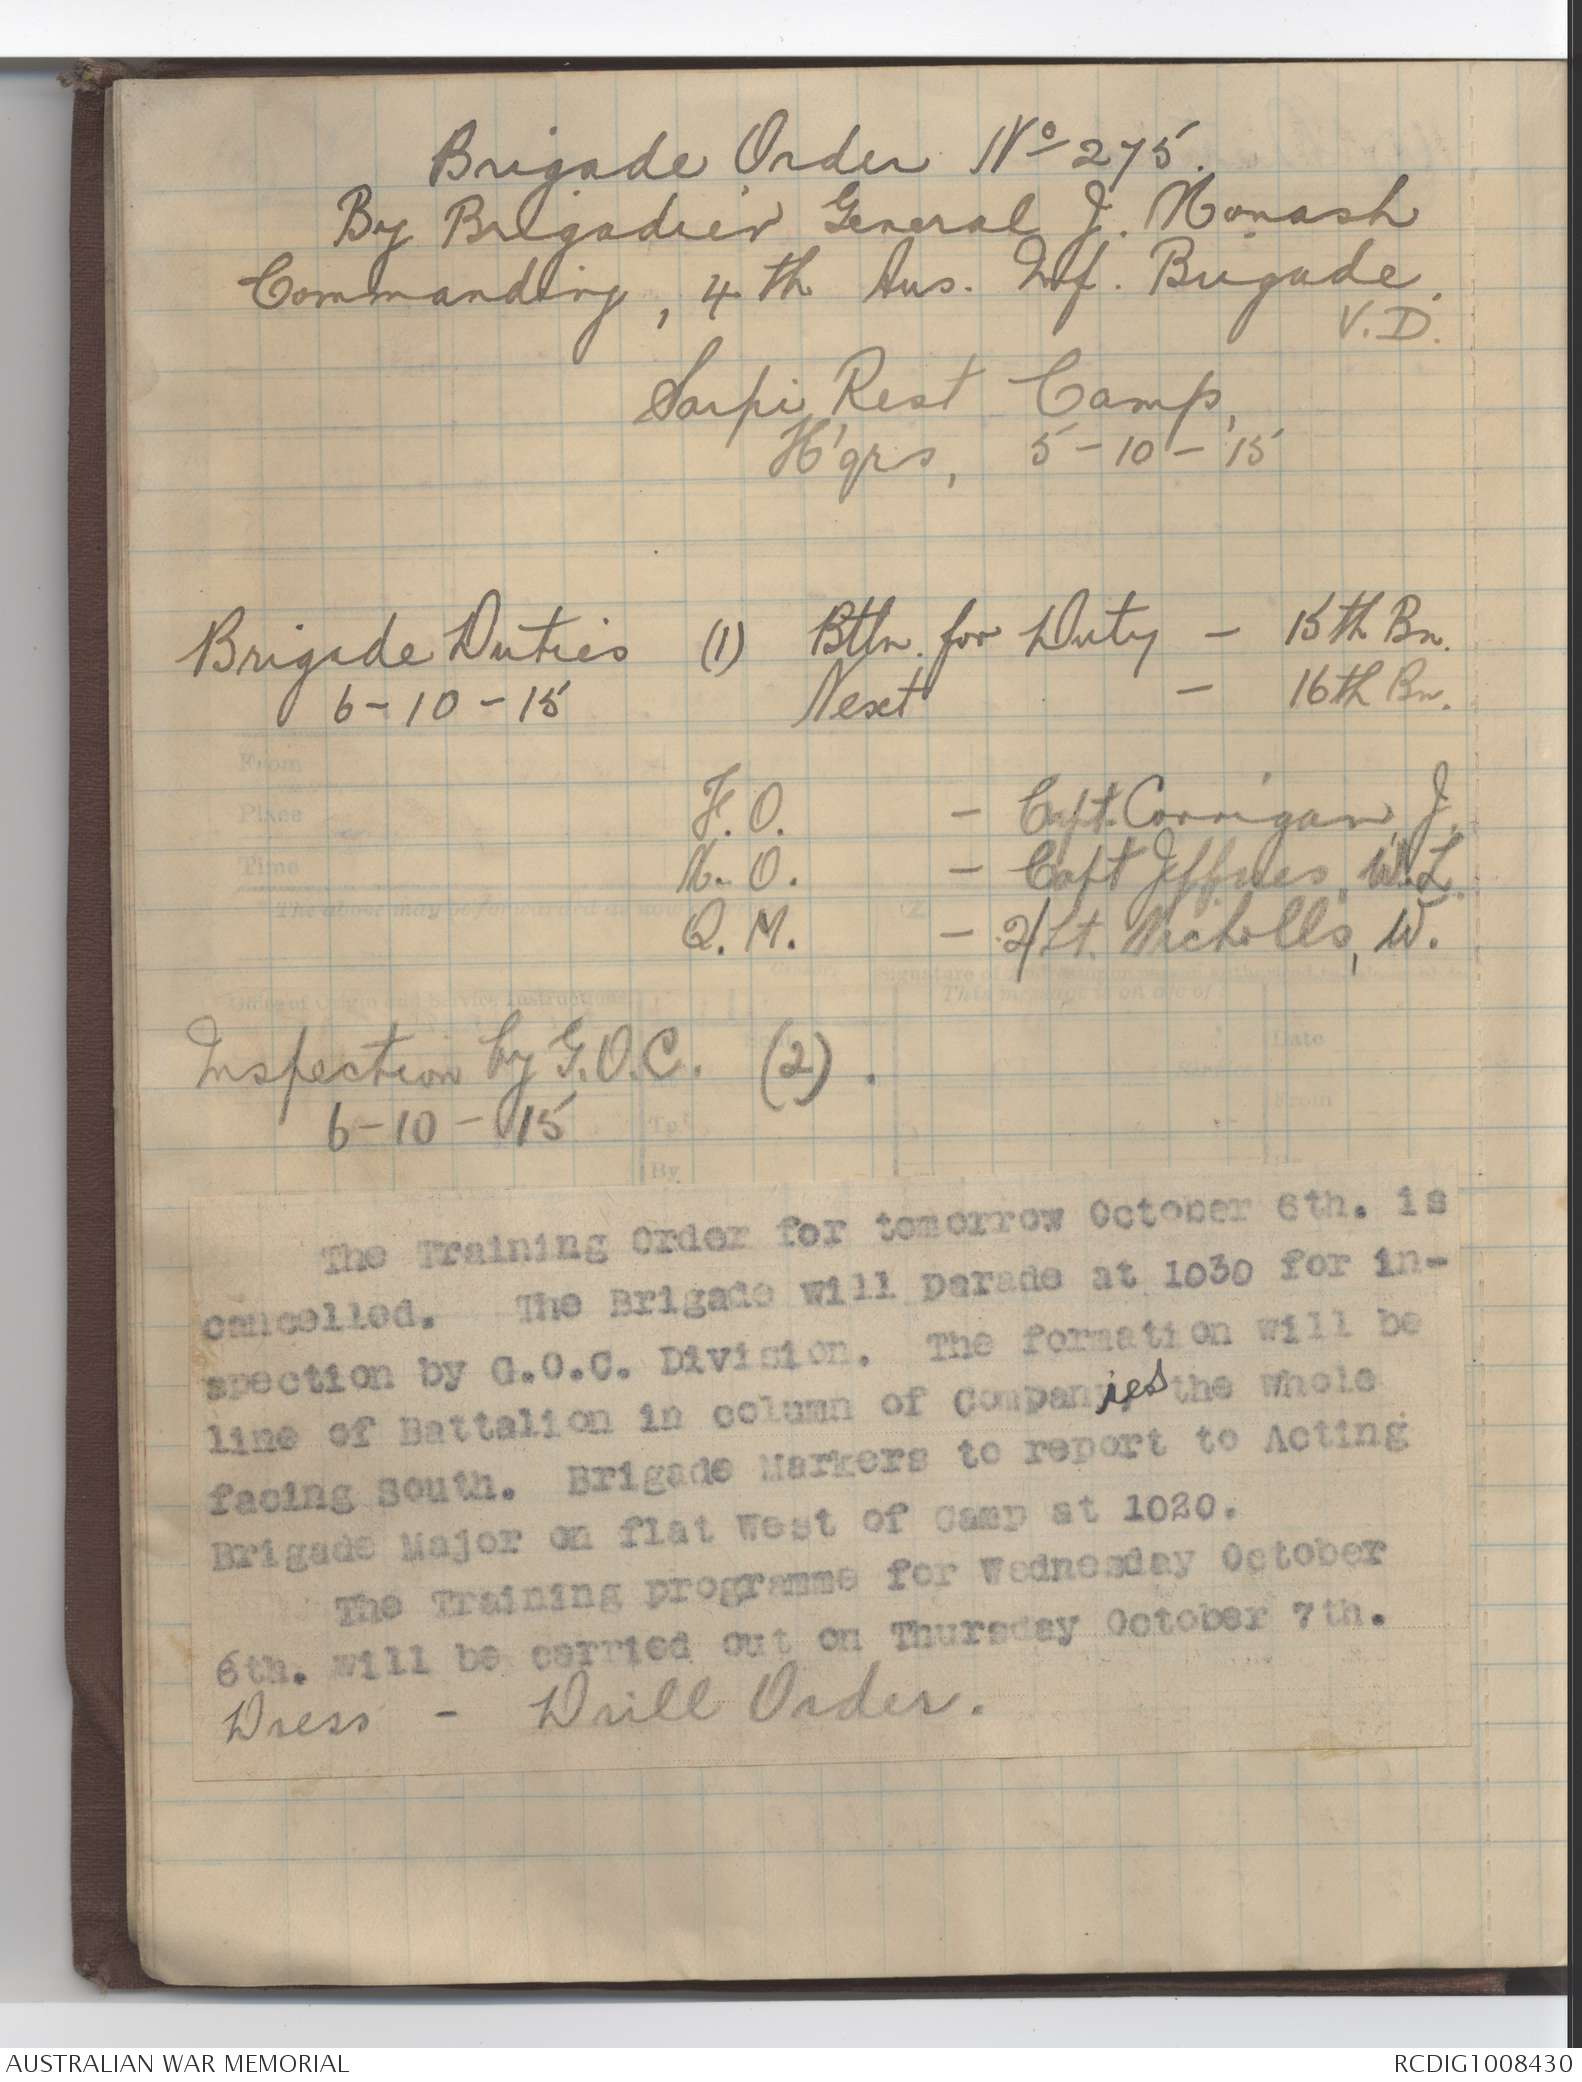 Brigade Order No 275.
By Brigadier General J. Monash
Commanding, 4th Aus. Inf. Brigade.
V.D.
Sarpi Rest Camp,
H'qrs, 5-10-15
Brigade Duties (1) Btln. for Duty - 15th Bn.
6-10-15 Next - 16th Bn.
From
Place
Time
F.O. - Capt. Corrigan, J.
M.O. - Capt Jeffries, W.L.
The above may be forwarded as now
(Z)
Q.M. - 2/Lt. Nicholls, W.
Censor.
This message is on a/c of :
Office of Origin and Service Instructions.
Date
Inspection by G.O.C. (2).
From
6-10-15
To
By
The Training Order for tomorrow October 6th. is
cancelled. The Brigade will parade at 1030 for in-
spection by G.O.C. Division. The formation will be
line of Battalion in column of Companies the whole
facing South. Brigade Markers to report to Acting
Brigade Major on flat West of Camp at 1020.
The Training programme for Wednesday October
6th. will be carried out on Thursday October 7th.
Dress - Drill Order.
AUSTRALIAN WAR MEMORIAL
RCDIG1008430